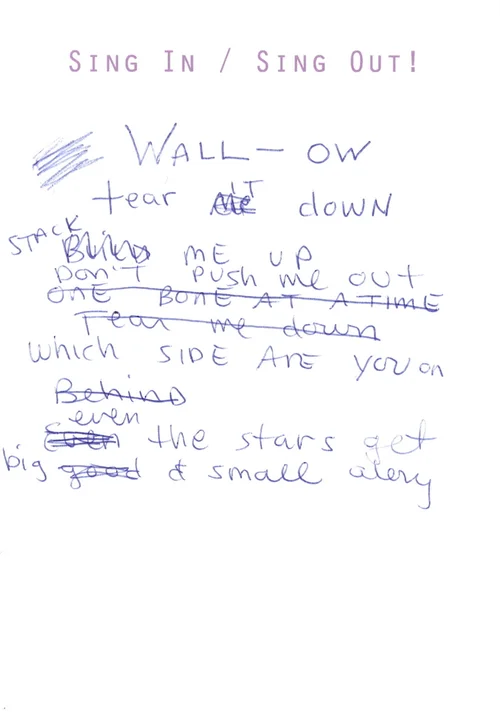 SING IN / SING OUT!
WALL – OW
tear IT down
STACK ME UP
DON'T PUSH me OUT
ONE BONE AT A TIME
Tear me down
which SIDE ARE YOU on
Behind
even
the stars get
big good & small